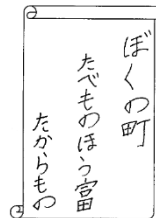 ぼくの町
たべものほう富
たからもの